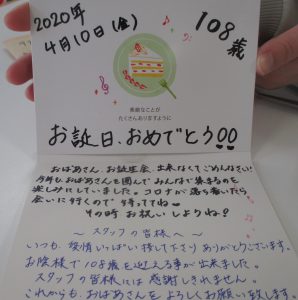 2020年
4月10日(金)
108歳
素敵なことが
たくさんありますように
お誕日、おめでとう!!
おばあさん、お誕生会、出来なくてごめんなさい!
今年も、おばあさんを囲んでみんなで集まるのを
楽しみにしていました。コロナが落ち着いたら
会いに行くので待っててね
その時お祝いしようね!
〜スタッフの皆様へ〜
いつも、愛情いっぱい接して下さりありがとうございます。
お陰様で108歳を迎える事が出来ました。
スタッフの皆様には感謝しきれません。
これからも、おばあさんをよろしくお願い致します。